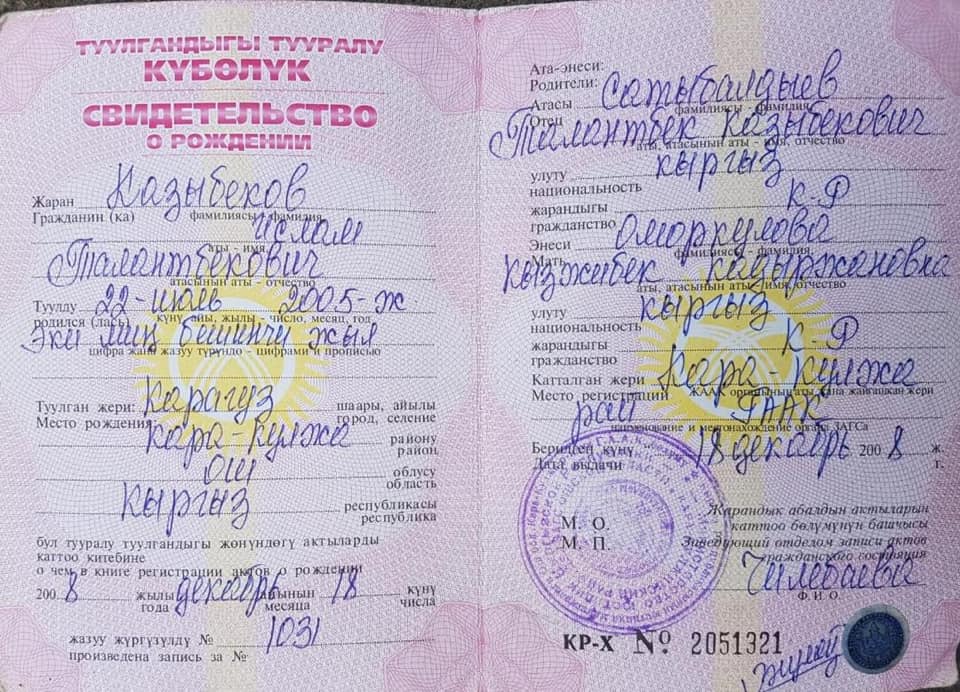 ТУУЛГАНДЫГЫ ТУУРАЛУ
КҮБӨЛҮК
СВИДЕТЕЛЬСТВО
О РОЖДЕНИИ
Жаран Казыбеков
Гражданин (ка) фамилиясы - фамилия
Ислам
аты - имя
Талантбекович
атасынын аты - отчество
Туулду 22-июль 2005-ж
родился (лась) күнү, айы, жылы - число, месяц, год
Эки миң бешинчи жыл
цифра жана жазуу түрүндө - цифрами и прописью
Туулган жери: Карагуз шаары, айылы
Место рождения: город, селение
Кара-Кулжа району
район
Ош облусу
область
Кыргыз республикасы
республика
бул тууралу туулгандыгы жөнүндөгү актыларды
каттоо китебине
о чем в книге регистрации актов о рождении
2008 жылы декабрь айынын 18 күнү
года месяца числа
жазуу жүргүзүлдү № 1031
произведена запись за №
Ата-энеси:
Родители:
Атасы Сатыбалдыев
Отец фамилиясы - фамилия
Талантбек Казыбекович
аты, атасынын аты - имя, отчество
улуту кыргыз
национальность
жарандыгы К-Р
гражданство
Энеси Оморкулова
Мать фамилиясы - фамилия
Кызжибек Кадыржановна
аты, атасынын аты - имя, отчество
улуту кыргыз
национальность
жарандыгы К-Р
гражданство
Катталган жери Кара-Кулжа
Место регистрации ЖААК органынын аты жана жайгашкан жери
рай ГААК
наименование и местонахождение органа ЗАГСа
Берилген күнү 18 декабрь 2008 ж.
Дата выдачи г.
М. О. Жарандык абалдын актыларын
каттоо бөлүмүнүн башчысы
М. П. Заведующий отделом записи актов
гражданского состояния
Чилебаева
Ф. И. О.
КР-Х № 2051321